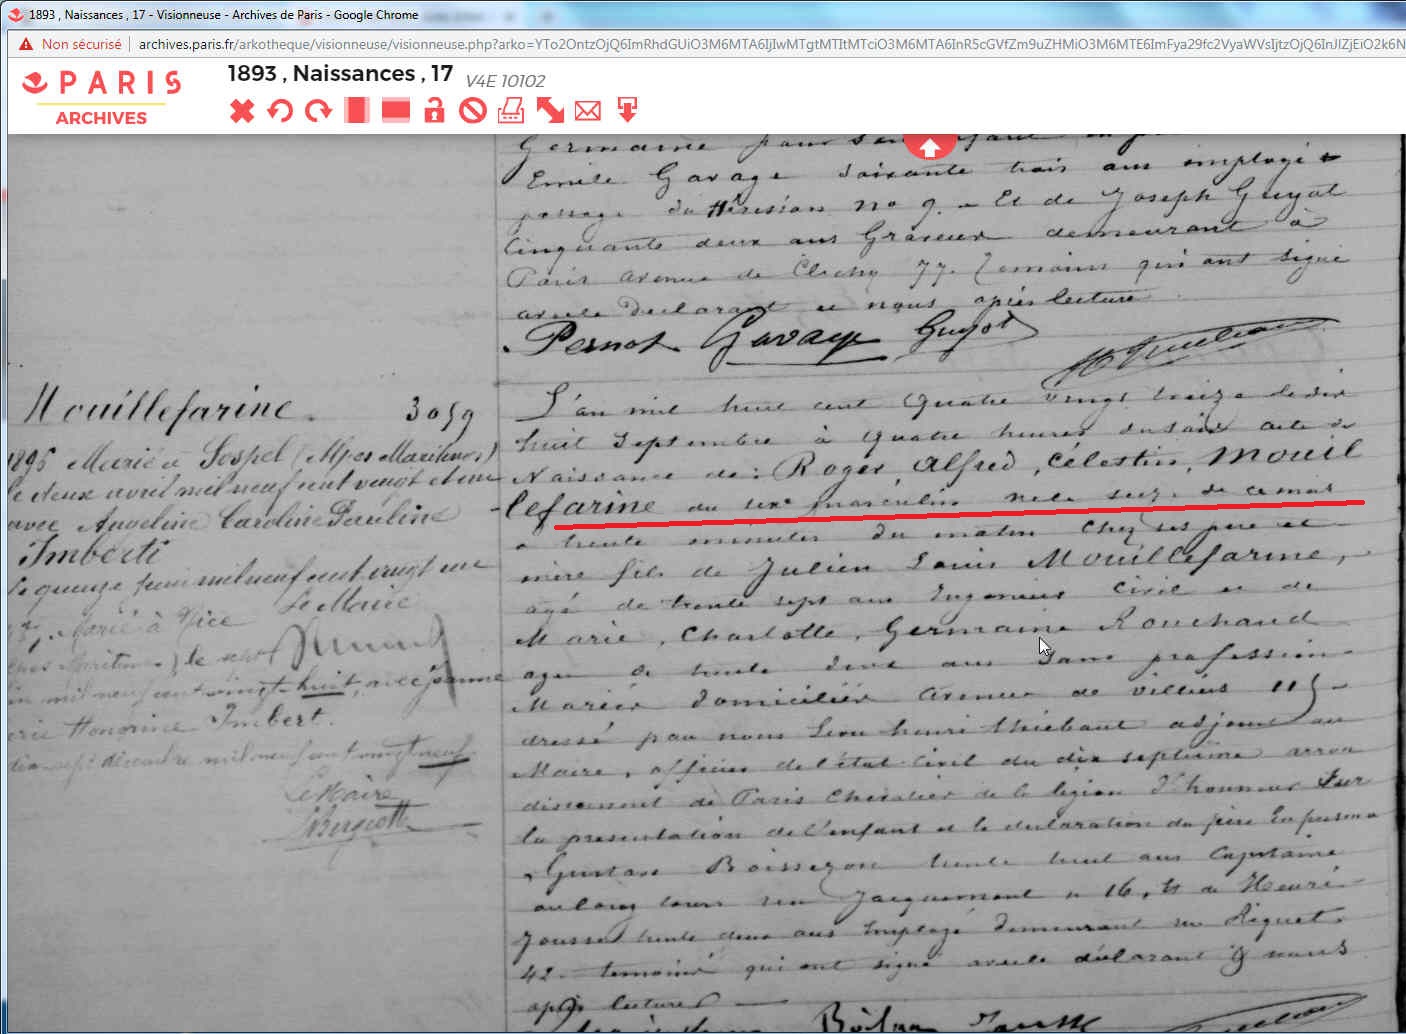 1893 , Naissances , 17 - Visionneuse - Archives de Paris - Google Chrome
Non sécurisé
archives.paris.fr/arkotheque/visionneuse/visionneuse.php?arko=
PARIS
ARCHIVES
1893 , Naissances , 17
V4E 10102
Germaine pour
Emile Gavage soixante trois ans employé
passage no 9. Et de Joseph Guyot
Cinquante deux ans Graveur demeurant à
Paris avenue de Clichy 77. Témoins qui ont signé
avec le Déclarant et nous après lecture
Pernot Gavage Guyot
Mouillefarine. 3059
Marié à Sospel (Alpes Maritimes)
le deux avril mil neuf cent vingt et un
avec Angeline Caroline Pauline
Imberti
le quinze juin mil neuf cent vingt un
Le Maire
Marié à Nice
le sept
mil neuf cent vingt-huit, avec Jeanne
Honorine Imbert.
dix-sept décembre mil neuf cent vingt neuf
Le Maire
L'an mil huit cent quatre vingt treize le dix
huit Septembre à quatre heures du soir acte de
Naissance de : Roger Alfred, Célestin, Mouil
lefarine du sexe masculin né le seize de ce mois
à trente minutes du matin chez ses père et
mère fils de Julien Louis Mouillefarine,
agé de trente sept ans Ingénieur Civil et de
Marie, Charlotte, Germaine Rouchaud
agée de trente deux ans Sans profession
Mariés domiciliés avenue de villiers 115
dressé par nous Léon henri thiébaut adjoint au
Maire, officier de l'état Civil du dix septième arron
dissement de Paris Chevalier de la légion d'honneur Sur
la présentation de l'enfant et la déclaration du père En présence
Gustave trente huit ans Capitaine
au long cours rue Jacquemont n 16, et de Henri
Jousse trente deux ans Employé demeurant rue Riquet
42 témoins qui ont signé avec le déclarant & nous
après lecture